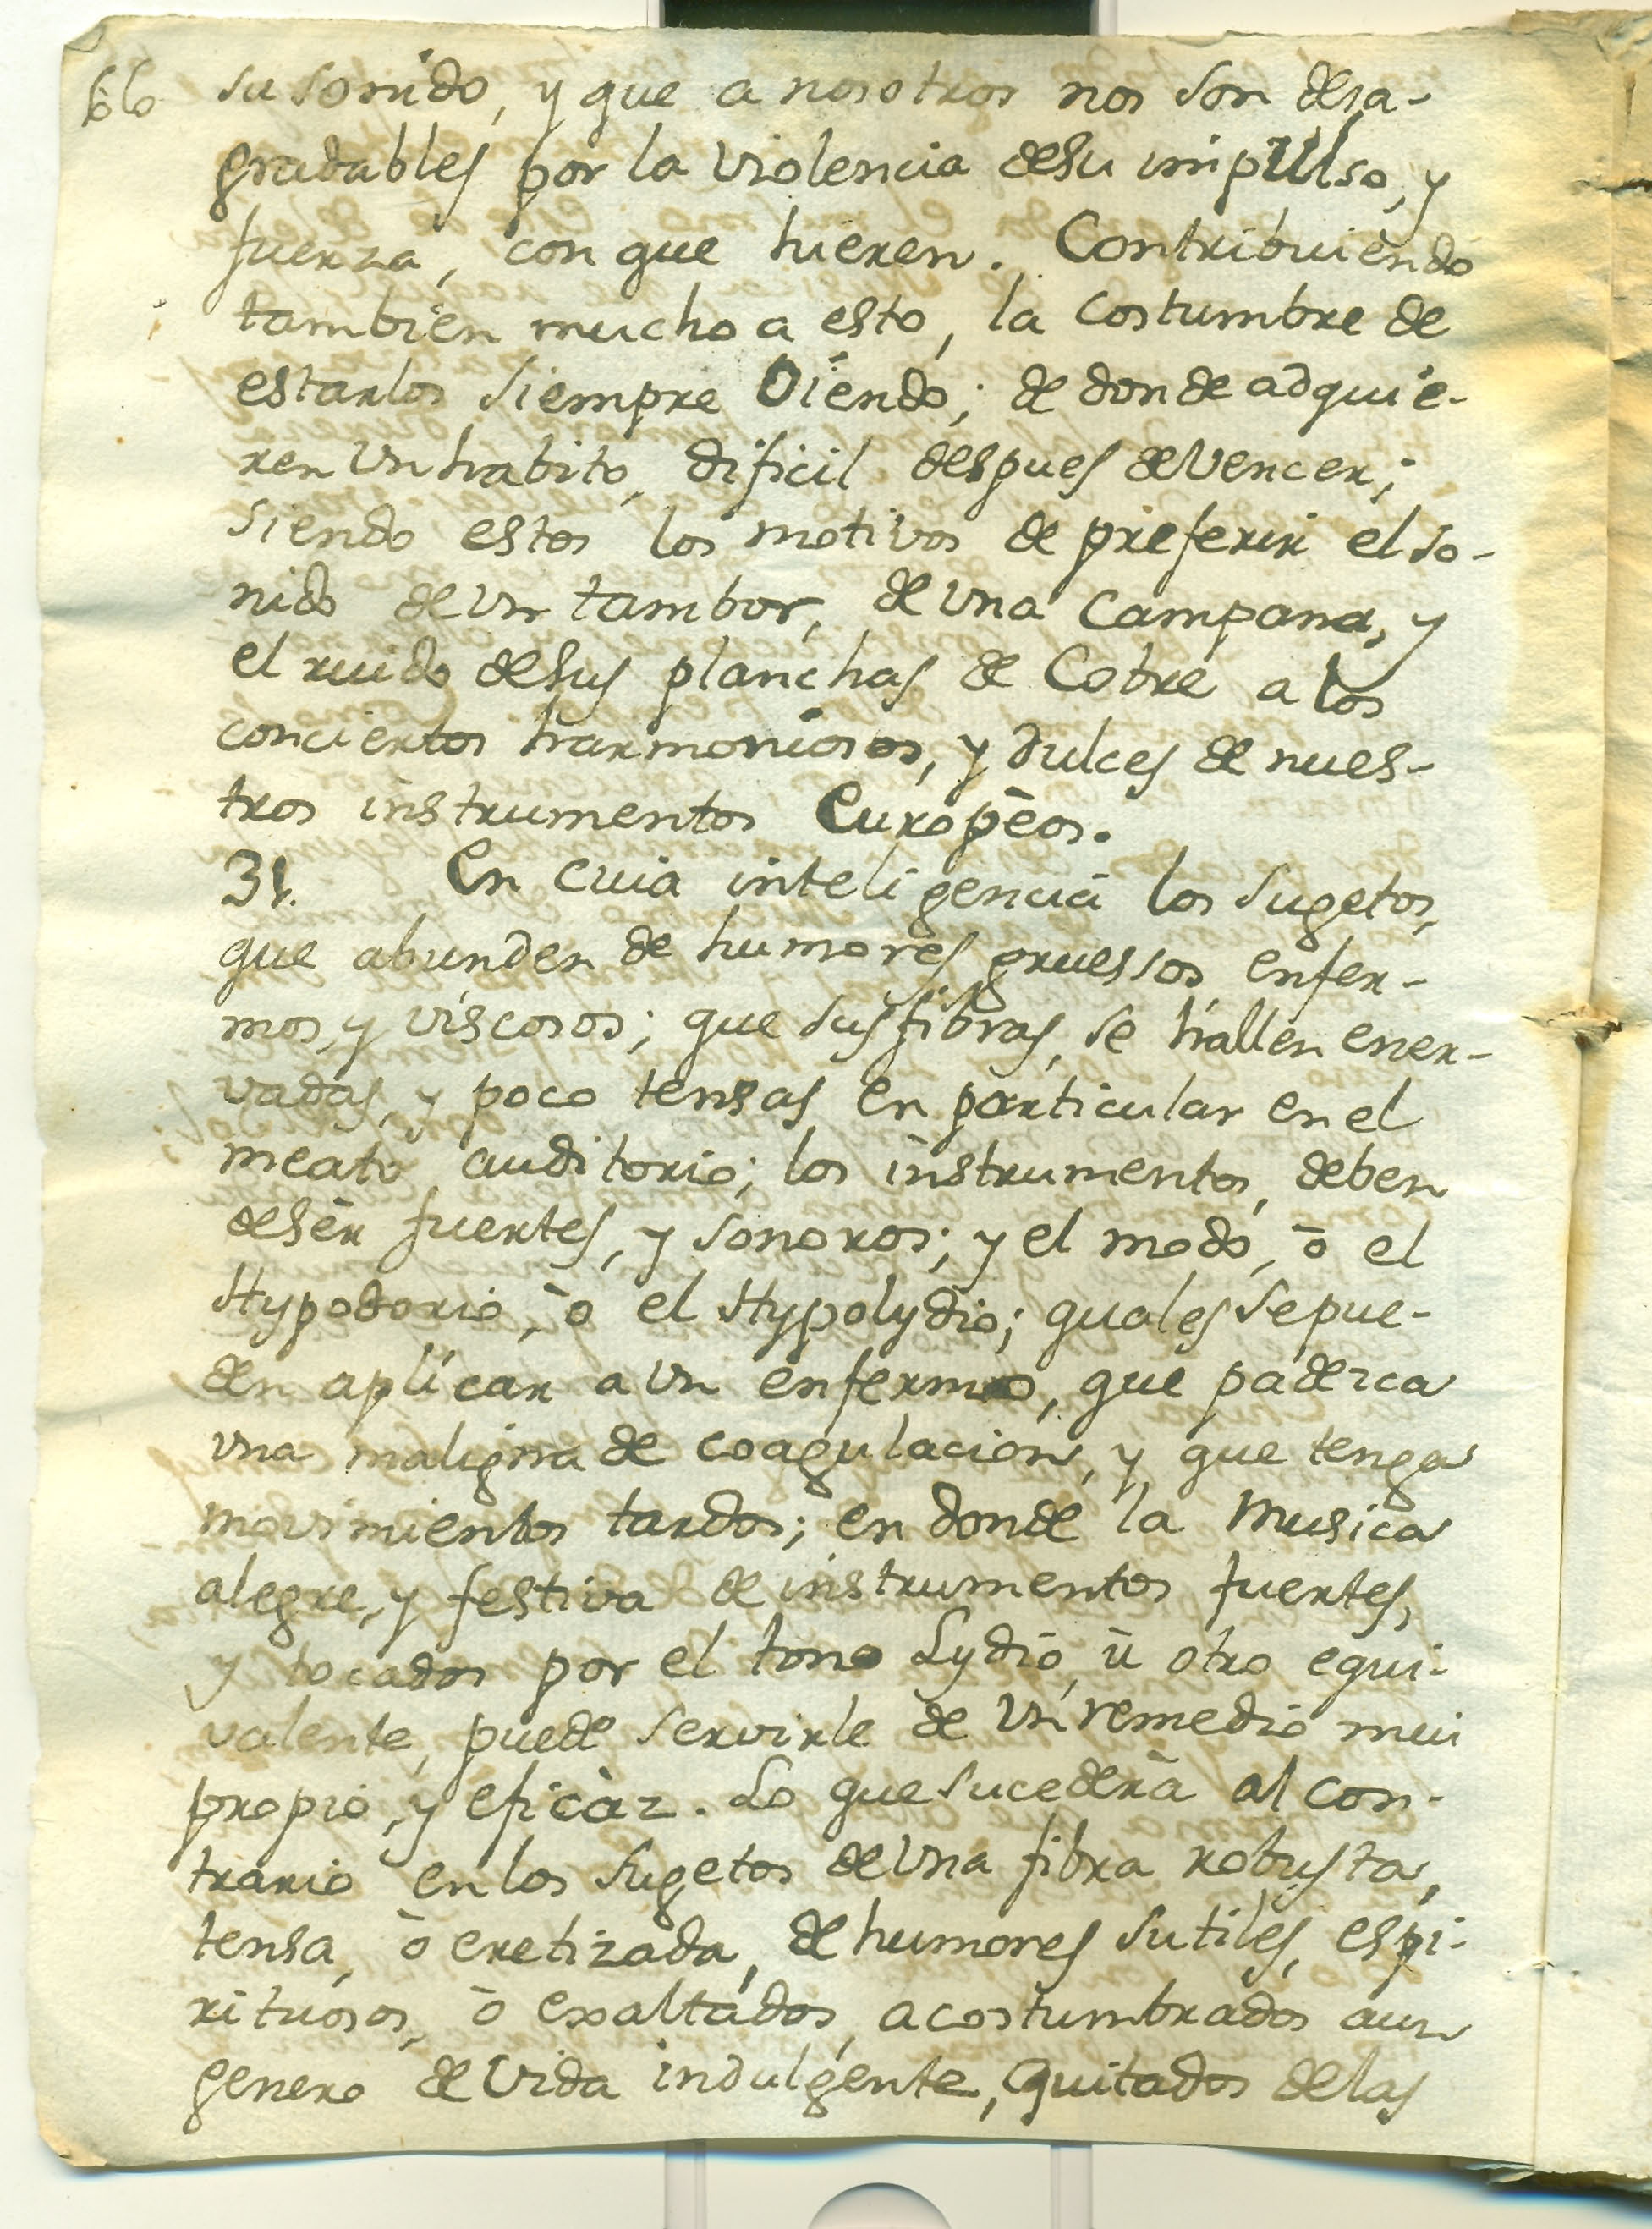 66
su sonido, y que a nosotros nos son desa-
gradables por la violencia desu impulso, y
fuerza, con que hieren. Contribuiendo
tambien mucho a esto, la costumbre de
estarlos siempre Oiendo; de donde adquie-
ren Un habito, dificil despues de Vencer;
siendo estos los motivos de preferir el so-
nido de Un tambor, de Una Campana, y
el ruido desus planchas de Cobre a los
conciertos harmoniosos, y dulces de nues-
tros instrumentos Europèos.
31. En cuia inteligencia los sugetos,
que abunden de humores gruessos, enfer-
mos, y viscosos; que sus fibras, se hallen ener-
vadas, y poco tensas en particular en el
meato auditorio; los instrumentos, deben
desèr fuertes, y sonoros; y el modo, ò el
Hypodorio, ò el Hypolydio; quales sepue-
den aplicar a Un enfermo, que padezca
Una maligna de coagulacion, y que tenga
movimientos tardos; en donde la Musica
alegre, y festiva de instrumentos fuertes,
y tocados por el tono Lydio, ù otro equi-
valente, puede servirle de Un remedio mui
propio, y eficàz. Lo que sucederà al con-
trario en los sugetos de Una fibra robusta,
tensa, ò eretizada, de humores sutiles, espi-
rituosos, ò exaltados, acostumbrados aun
genero de Vida indulgente, quitados de las